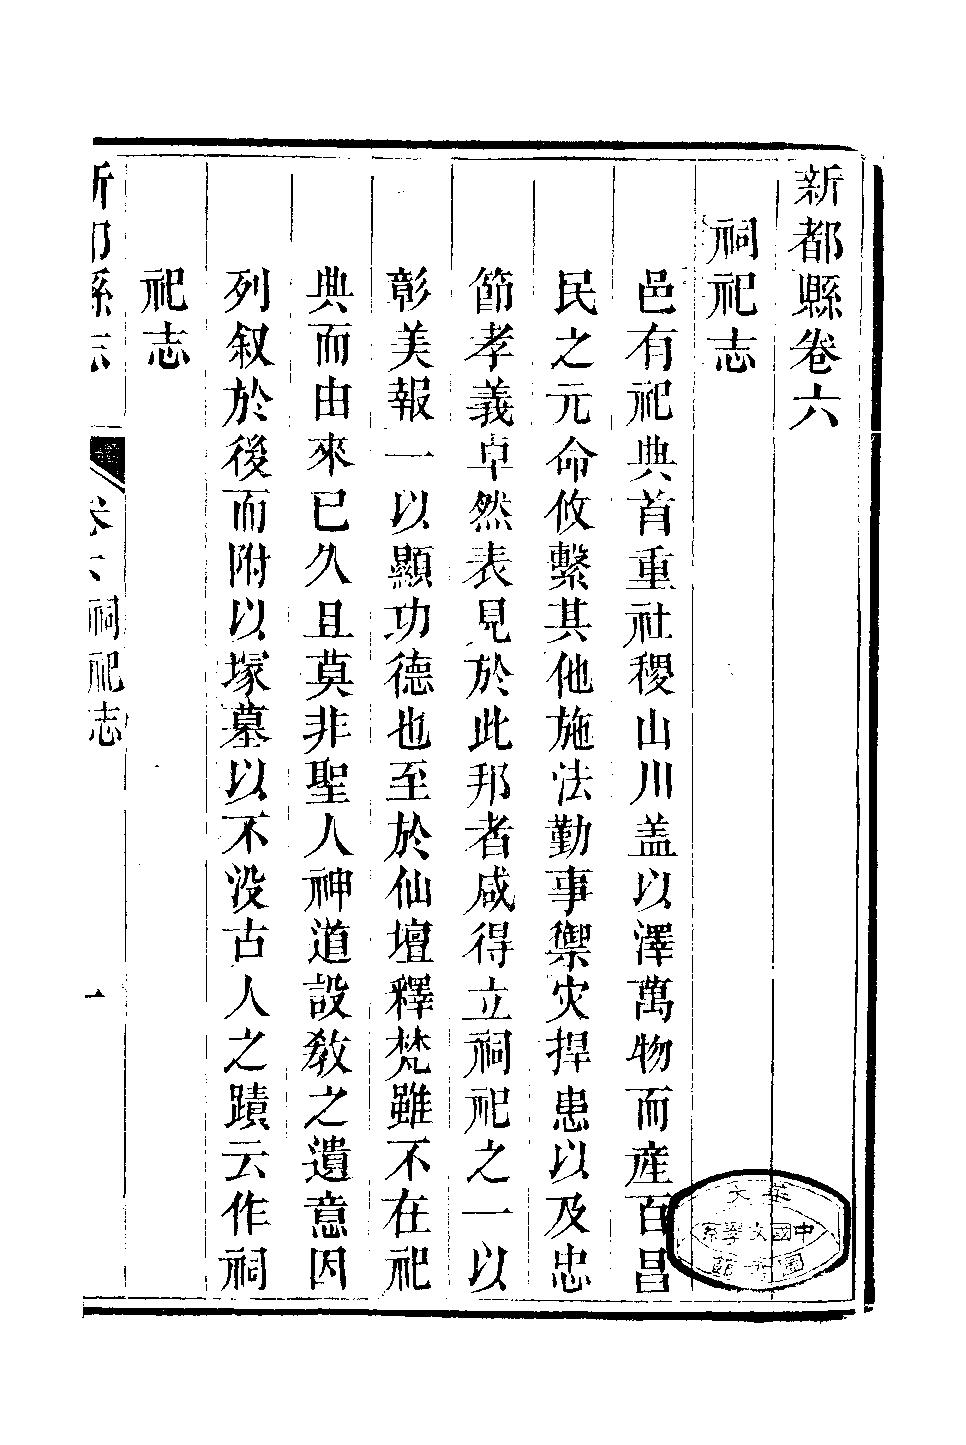 新都縣卷六
祠祀志
邑有祀典首重社稷山川盖以澤萬物而産百昌
民之元命攸繫其他施法勤事禦灾捍患以及忠
節孝義卓然表見於此邦者咸得立祠祀之一以
彰美報一以顯功德也至於仙壇釋梵雖不在祀
典而由來已久且莫非聖人神道設教之遺意因
列叙於後而附以塚墓以不没古人之蹟云作祠
祀志
新都縣志
卷六
祠祀志
一
中國文學系